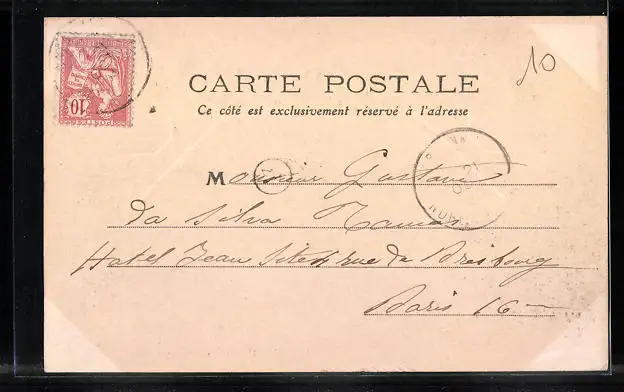 10
CARTE POSTALE
Ce côté est exclusivement réservé à l'adresse
Monsieur Gustave
da Silva Ramos
Hotel Jean rue de Presbourg
Paris 16
10
POSTES